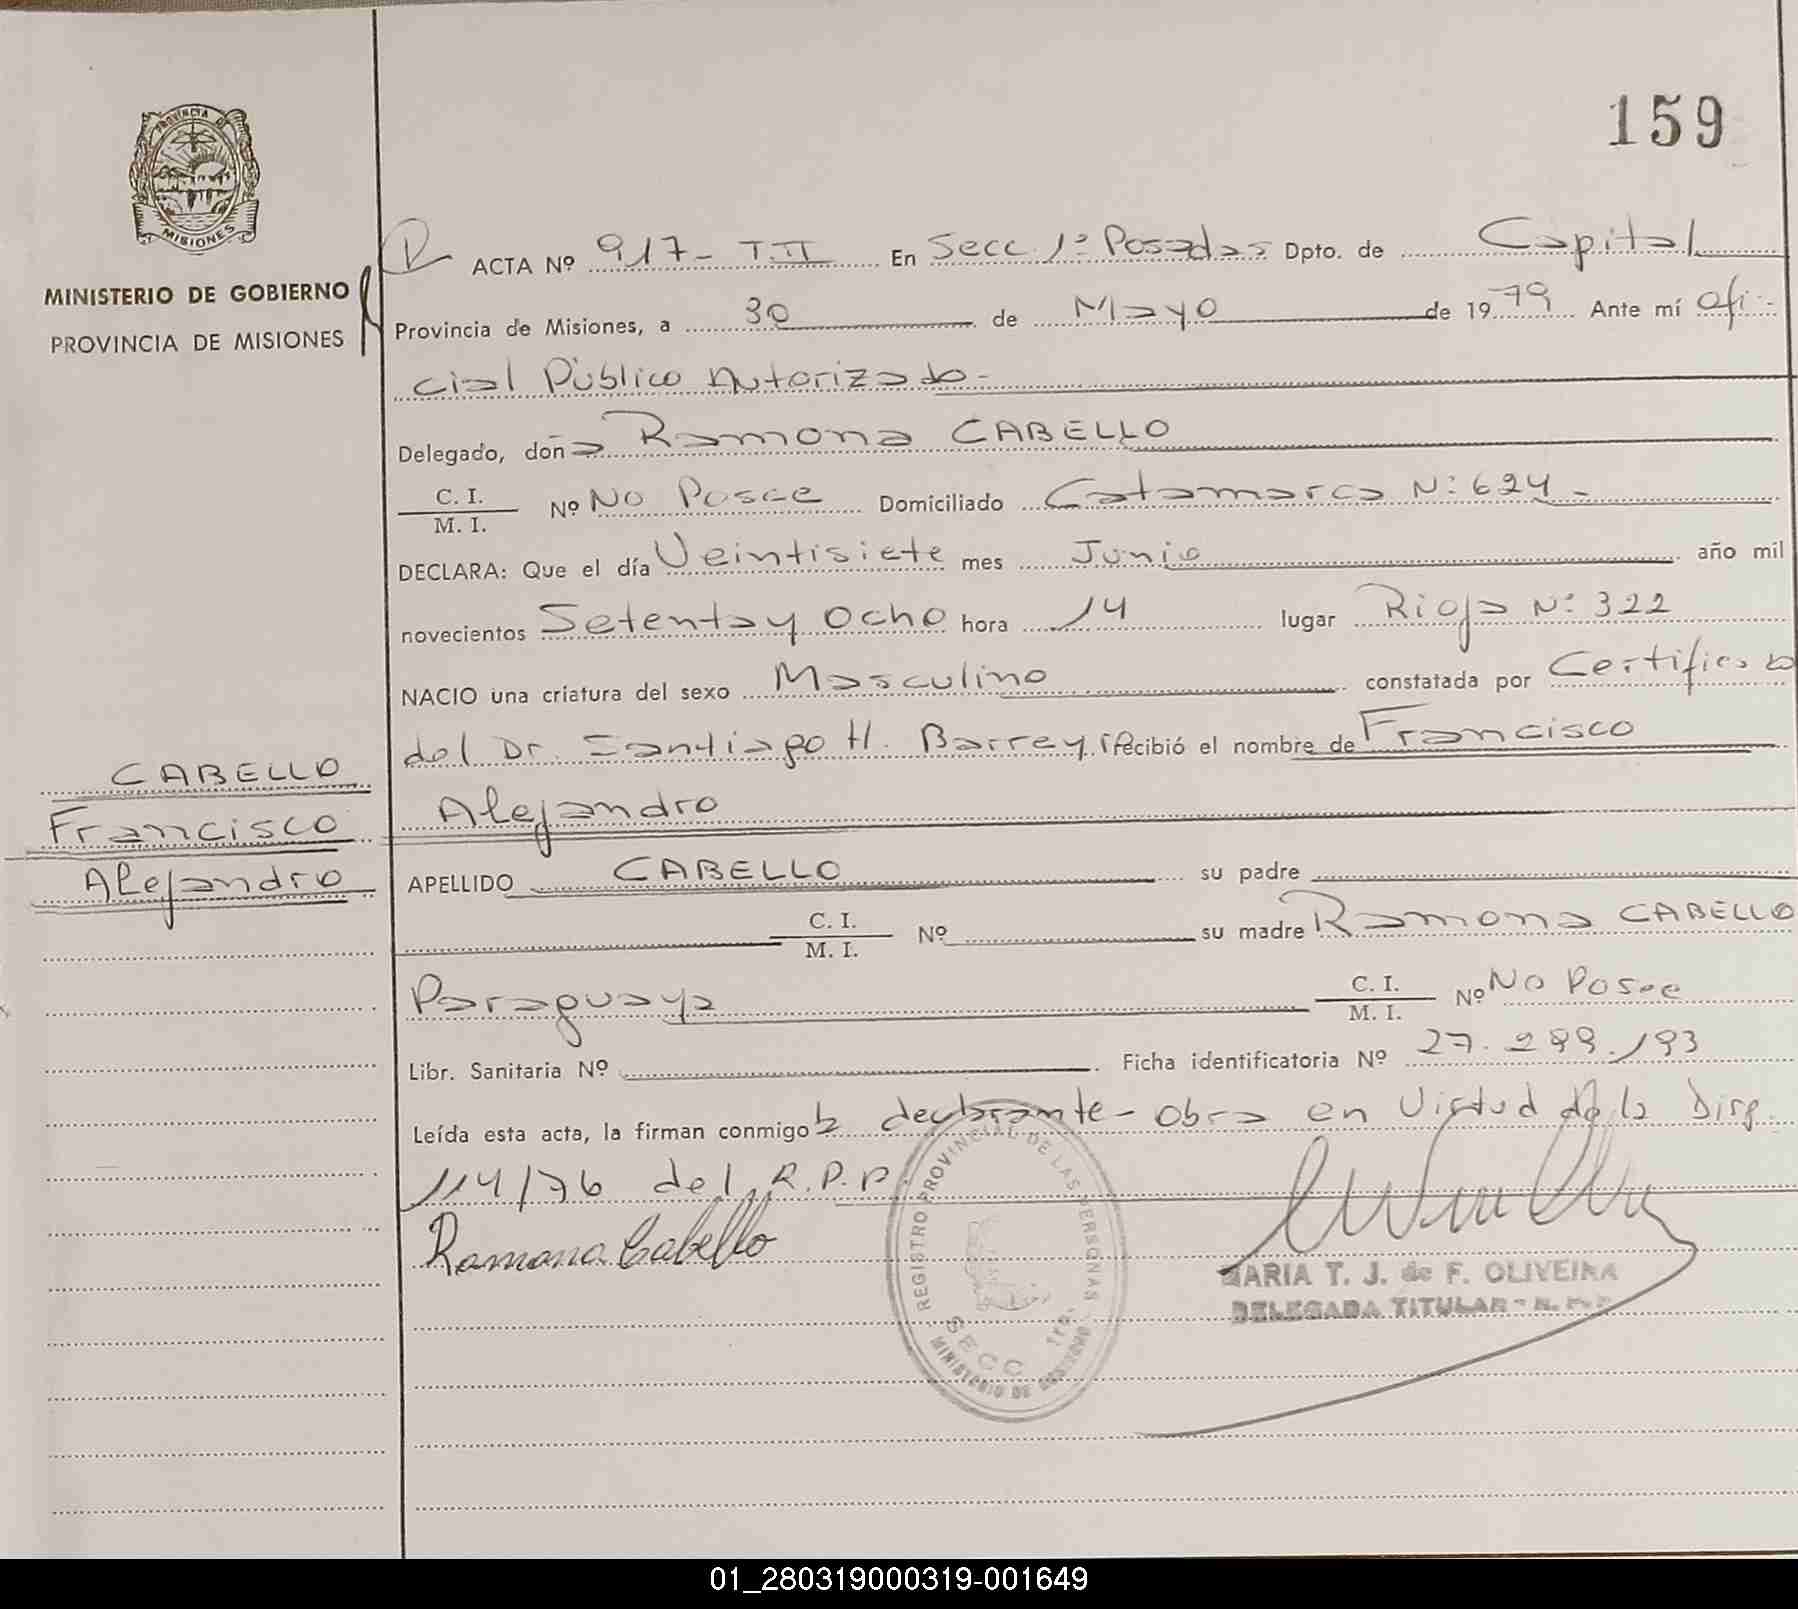 159
PROVINCIA DE
MISIONES
MINISTERIO DE GOBIERNO
PROVINCIA DE MISIONES
ACTA Nº 917- T.II En Secc. 1ª Posadas Dpto. de Capital
Provincia de Misiones, a 30 de Mayo de 1979 Ante mí Ofi-
cial Público Autorizado-
Delegado, doña Ramona CABELLO
C. I.
M. I. Nº No Posee Domiciliado Catamarca Nº 624-
DECLARA: Que el día Veintisiete mes Junio año mil
novecientos Setenta y Ocho hora 14 lugar Rioja Nº 322
NACIO una criatura del sexo Masculino constatada por Certificado
del Dr. Santiago H. Barreyro recibió el nombre de Francisco
Alejandro
CABELLO
Francisco
Alejandro
APELLIDO CABELLO su padre
C. I.
M. I. Nº su madre Ramona CABELLO
Paraguaya C. I.
M. I. Nº No Posee
Libr. Sanitaria Nº Ficha identificatoria Nº 27.299.193
Leída esta acta, la firman conmigo la declarante- obra en Virtud de la Disp.
114/76 del R.P.P.
Ramona Cabello
REGISTRO PROVINCIAL DE LAS PERSONAS
SECC 1ra.
MINISTERIO DE GOBIERNO
MARIA T. J. de F. OLIVEIRA
DELEGADA TITULAR - R. P. P.
01_280319000319-001649